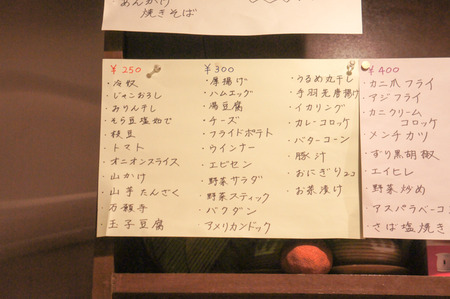 あんかけ
焼きそば
¥250
・冷奴
・じゃこおろし
・みりん干し
・そら豆塩ゆで
・枝豆
・トマト
・オニオンスライス
・山かけ
・山芋たんざく
・万願寺
・玉子豆腐
¥300
・厚揚げ
・ハムエッグ
・湯豆腐
・チーズ
・フライドポテト
・ウインナー
・エビセン
・野菜サラダ
・野菜スティック
・バクダン
・アメリカンドック
・うるめ丸干し
・手羽先唐揚げ
・イカリング
・カレーコロッケ
・バターコーン
・豚汁
・おにぎり2コ
・お茶漬け
¥400
・カニ爪フライ
・アジフライ
・カニクリーム
コロッケ
・メンチカツ
・ずり黒胡椒
・エイヒレ
・野菜炒め
・アスパラベーコ
・さば塩焼き